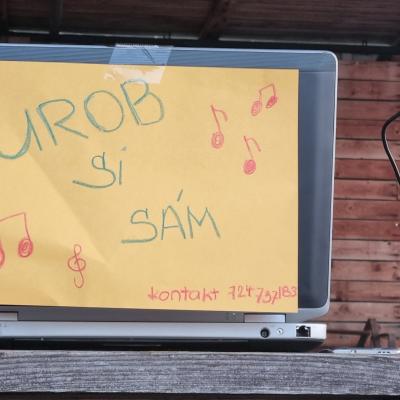 UROB
SI
SÁM
kontakt 724 737183